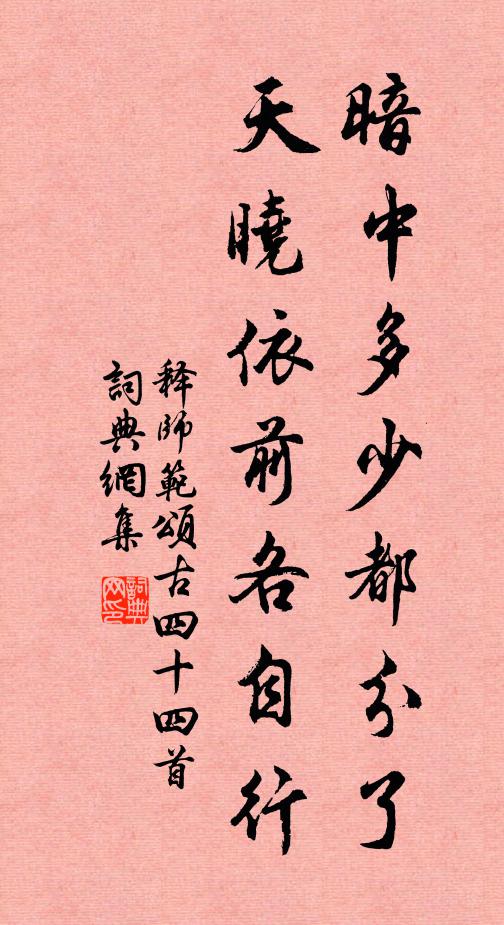 暗中多少都分了
天曉依前各自行
释師範頌古四十四首
詞典網集
詞典网印